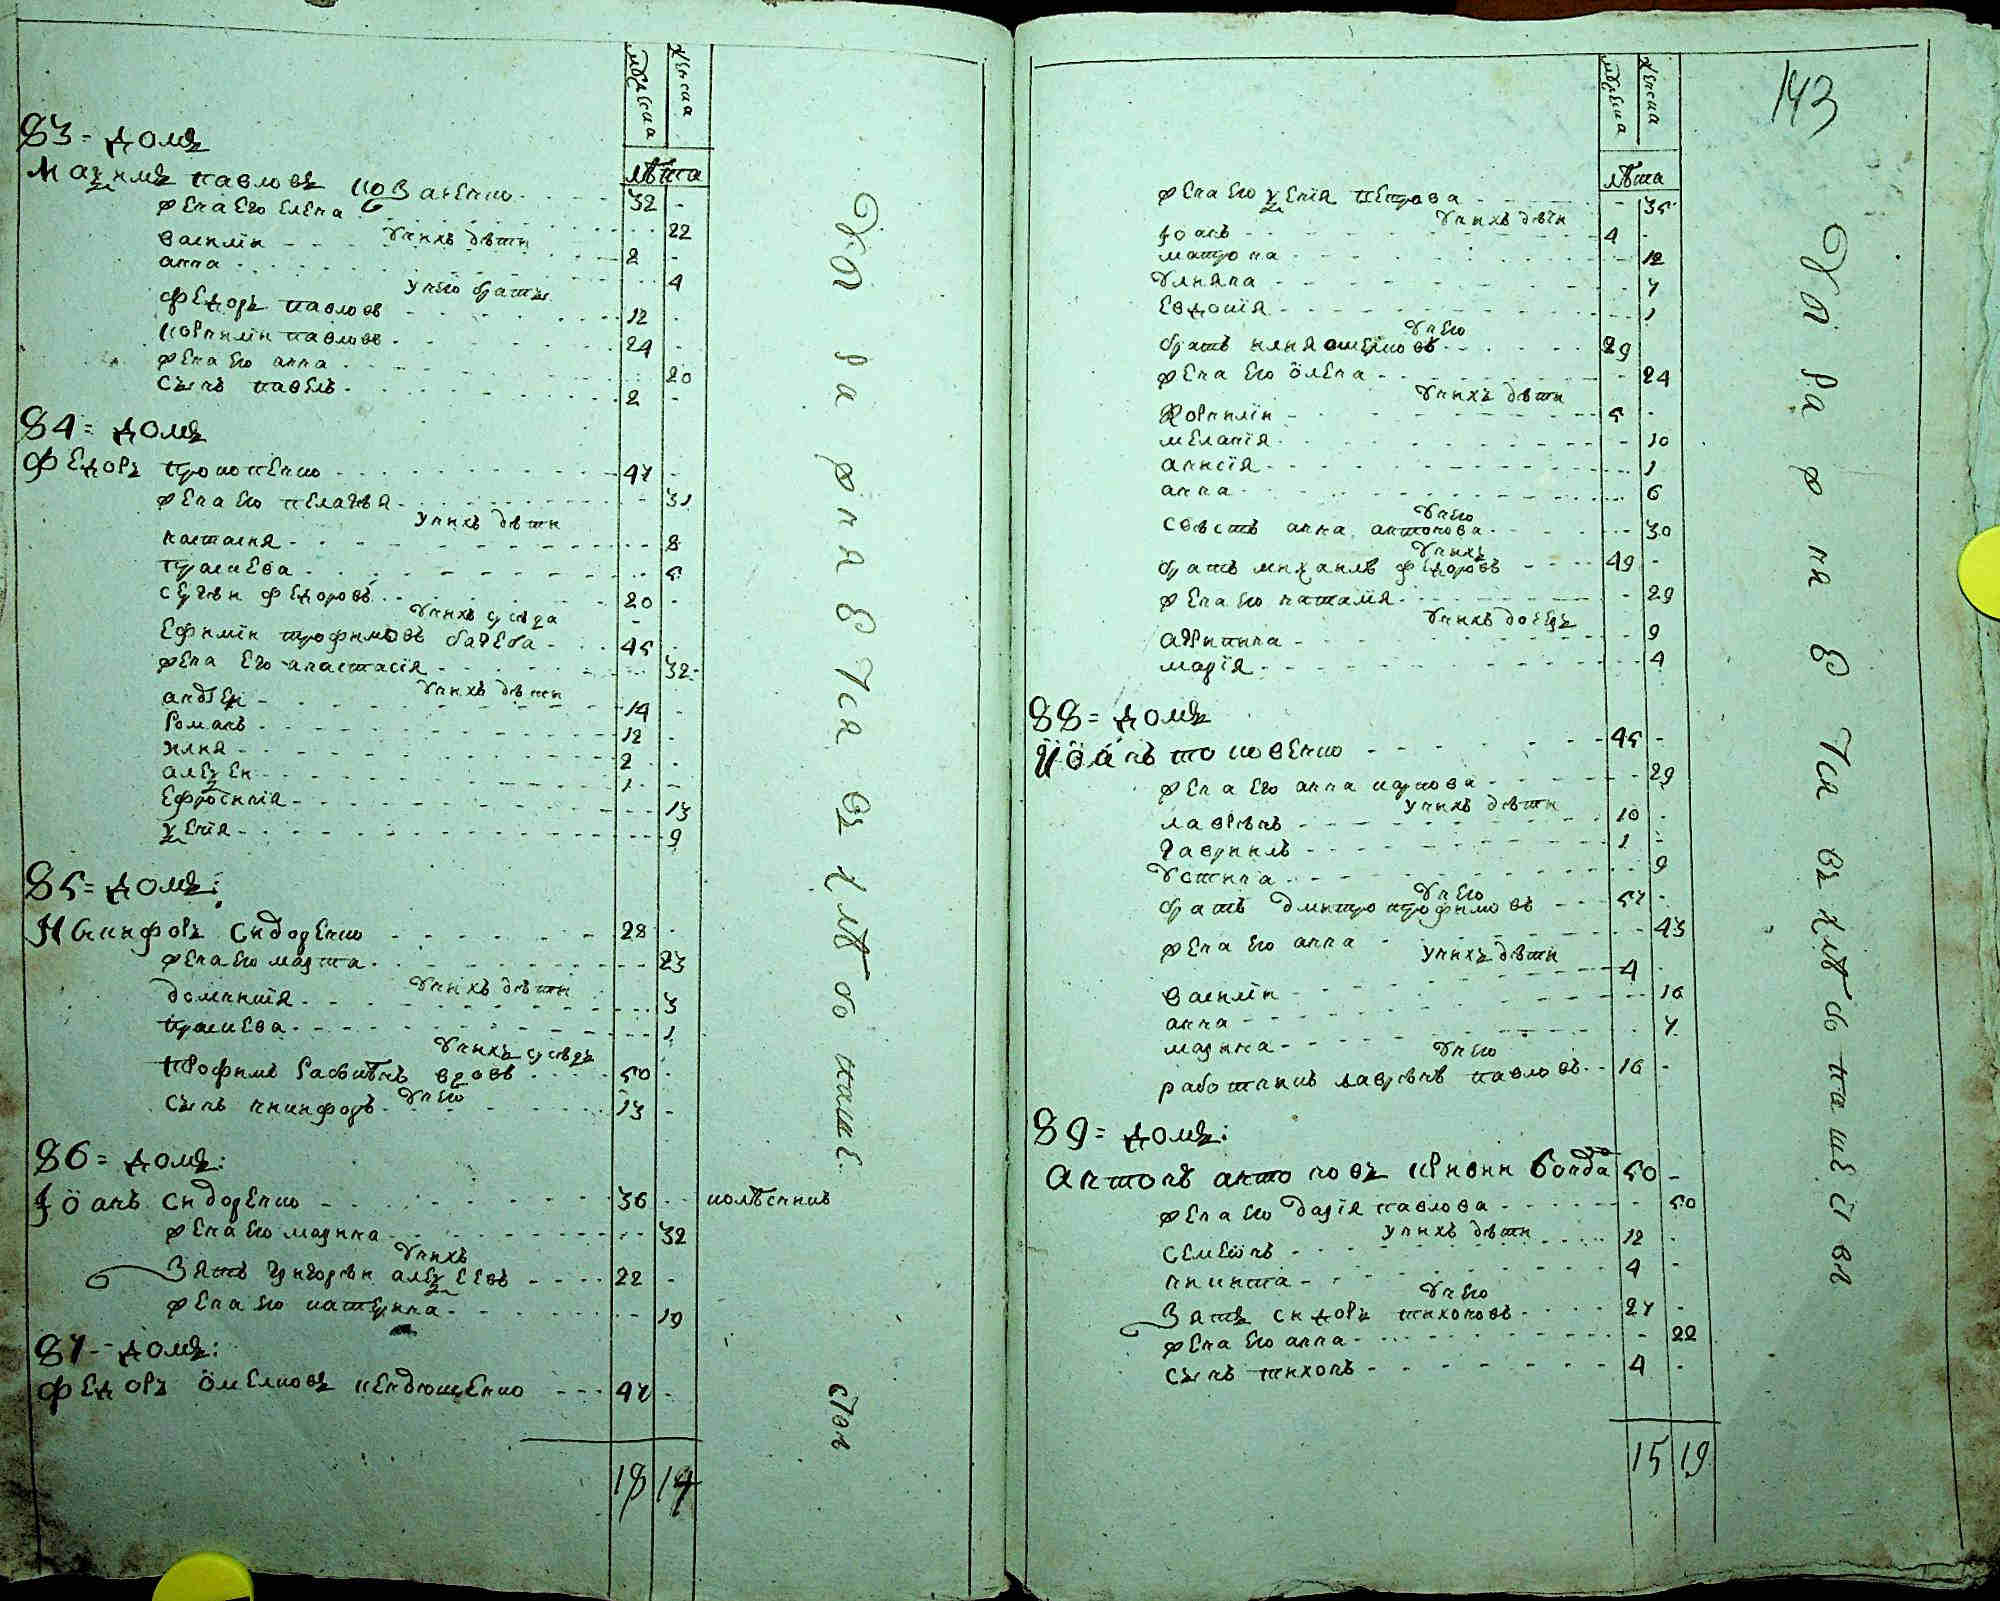 мужска женска
лѣта
83 = домъ
Маѯимъ павловъ коваленко 32
жена его елена 22
у нихъ дѣти
василїи 2
анна 4
у него братъя
Федоръ павловъ 12
корнилїи павловъ 24
жена его анна 20
сынъ павелъ 2
84 = домъ
Федоръ прокопенко 47
жена его пелагѣя 31
у нихъ дѣти
настасия 8
прасиева 5
сергѣи федоровъ 20
у нихъ сусѣда
Ефимїи трофимовъ 45
жена его анастасїя 32
у нихъ дѣти
андрей 14
Романъ 12
илия 2
алеѯеи 1
Ефросинїя 13
ѯенїя 9
85 = домъ:
Никифоръ Сидоренко 28
жена его марта 23
у нихъ дѣти
доминикїя 3
прасиева 1
у нихъ сусѣдъ
трофимъ 50
у него
сынъ никифоръ 13
86 = домъ:
Їоанъ Сидоренко 36 колѣсникъ
жена его марина 32
у нихъ
Зять григорїи алеѯеевъ 22
жена его катерина 19
87 - домъ:
Федоръ омелковъ 47
18 14
убѣ ра жня ю тся въ хлѣбо паше
ствѣ
143
мужска женска
лѣта
жена его ѯенїя петрова 35
у нихъ дѣти
Їоанъ 4
матрона 12
Улияна 7
Евдокїя 1
у него
братъ илия омелковъ 29
жена его олена 24
у нихъ дѣти
Корнилїи 5
меланїя 10
анисїя 1
анна 6
у него
свѣсть анна антонова 30
у нихъ
братъ михаилъ федоровъ 49
жена его наталїя 29
у нихъ дочери
агрипина 9
марїя 4
88 = домъ
Їоанъ токовенко 45
жена его анна карпова 29
у нихъ дѣти
лаврѣнъ 10
гавриилъ 1
Устина 9
у него
братъ дмитро трофимовъ 57
жена его анна 43
у нихъ дѣти
василїи 4
анна 16
марина 7
у него
работникъ лаврѣнъ павловъ 16
89 = домъ:
антонъ антоновъ 50
жена его дарїя павлова 50
у нихъ дѣти
семенъ 12
никита 4
у него
Зять сидоръ тихоновъ 27
жена его анна 22
сынъ тихонъ 4
15 19